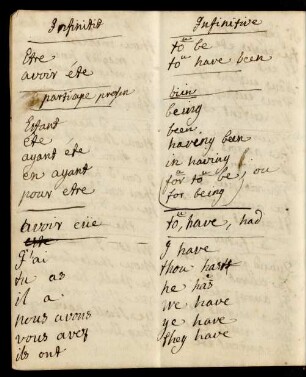 Infinitif Infinitive
Etre to be
avoir éte to have been
participe presen bien
Estant being
éte been
ayant éte having been
en ayant in having
pour etre for to be, ou
for being
avoir eüe to, have, had
J'ai I have
tu as thou hast
il a he has
nous avons we have
vous avez ye have
ils ont they have